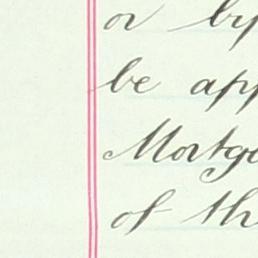 or by
be app
Mortga
of th